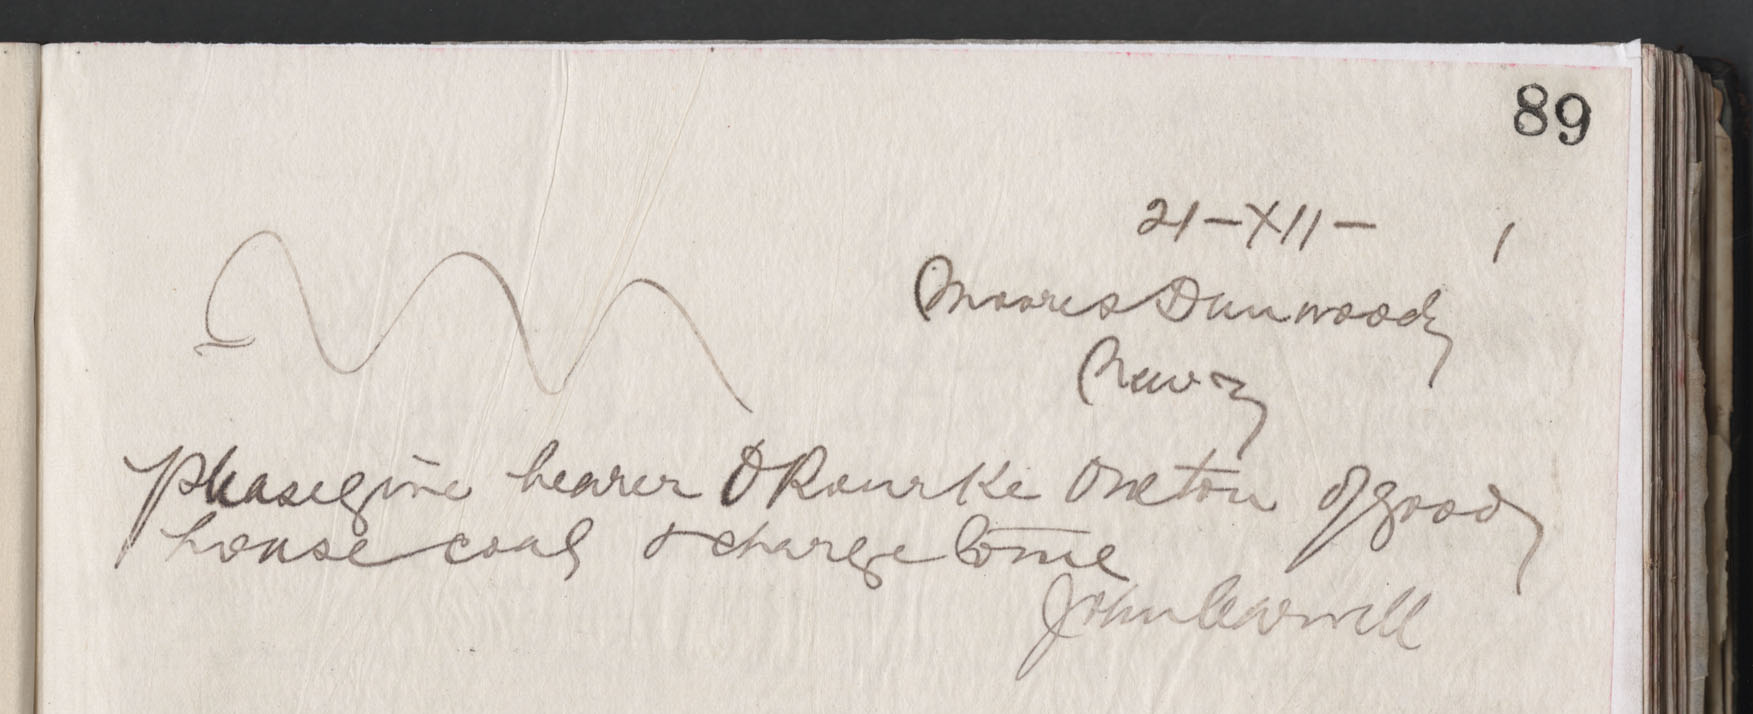 89
21-XII- 1
Moores Dunwoody
Newry
Please give bearer O Rourke one ton of good
house coal & charge to me
John